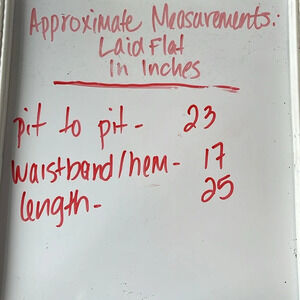 Approximate Measurements:
Laid Flat
In Inches
pit to pit - 23
waistband/hem - 17
length - 25